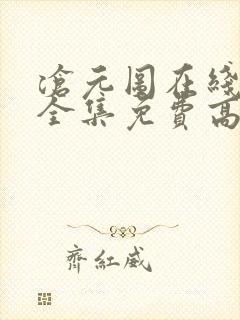 滄元圖在綫
全集免費高
齊紅威